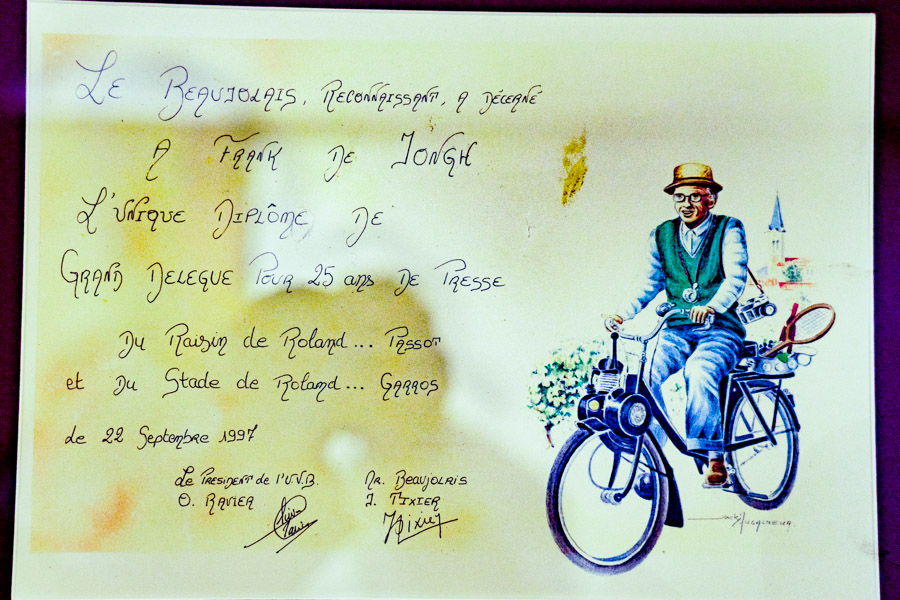 Le Beaujolais, Reconnaissant, a décerné
A Frank De Jongh
L'Unique Diplôme De
Grand Delegue Pour 25 ans De Presse
Du Raisin de Roland... Passot
et Du Stade de Roland... Garros
de 22 Septembre 1997
Le President de l'U.V.B. Mr. Beaujolais
O. Ravier J. Tixier